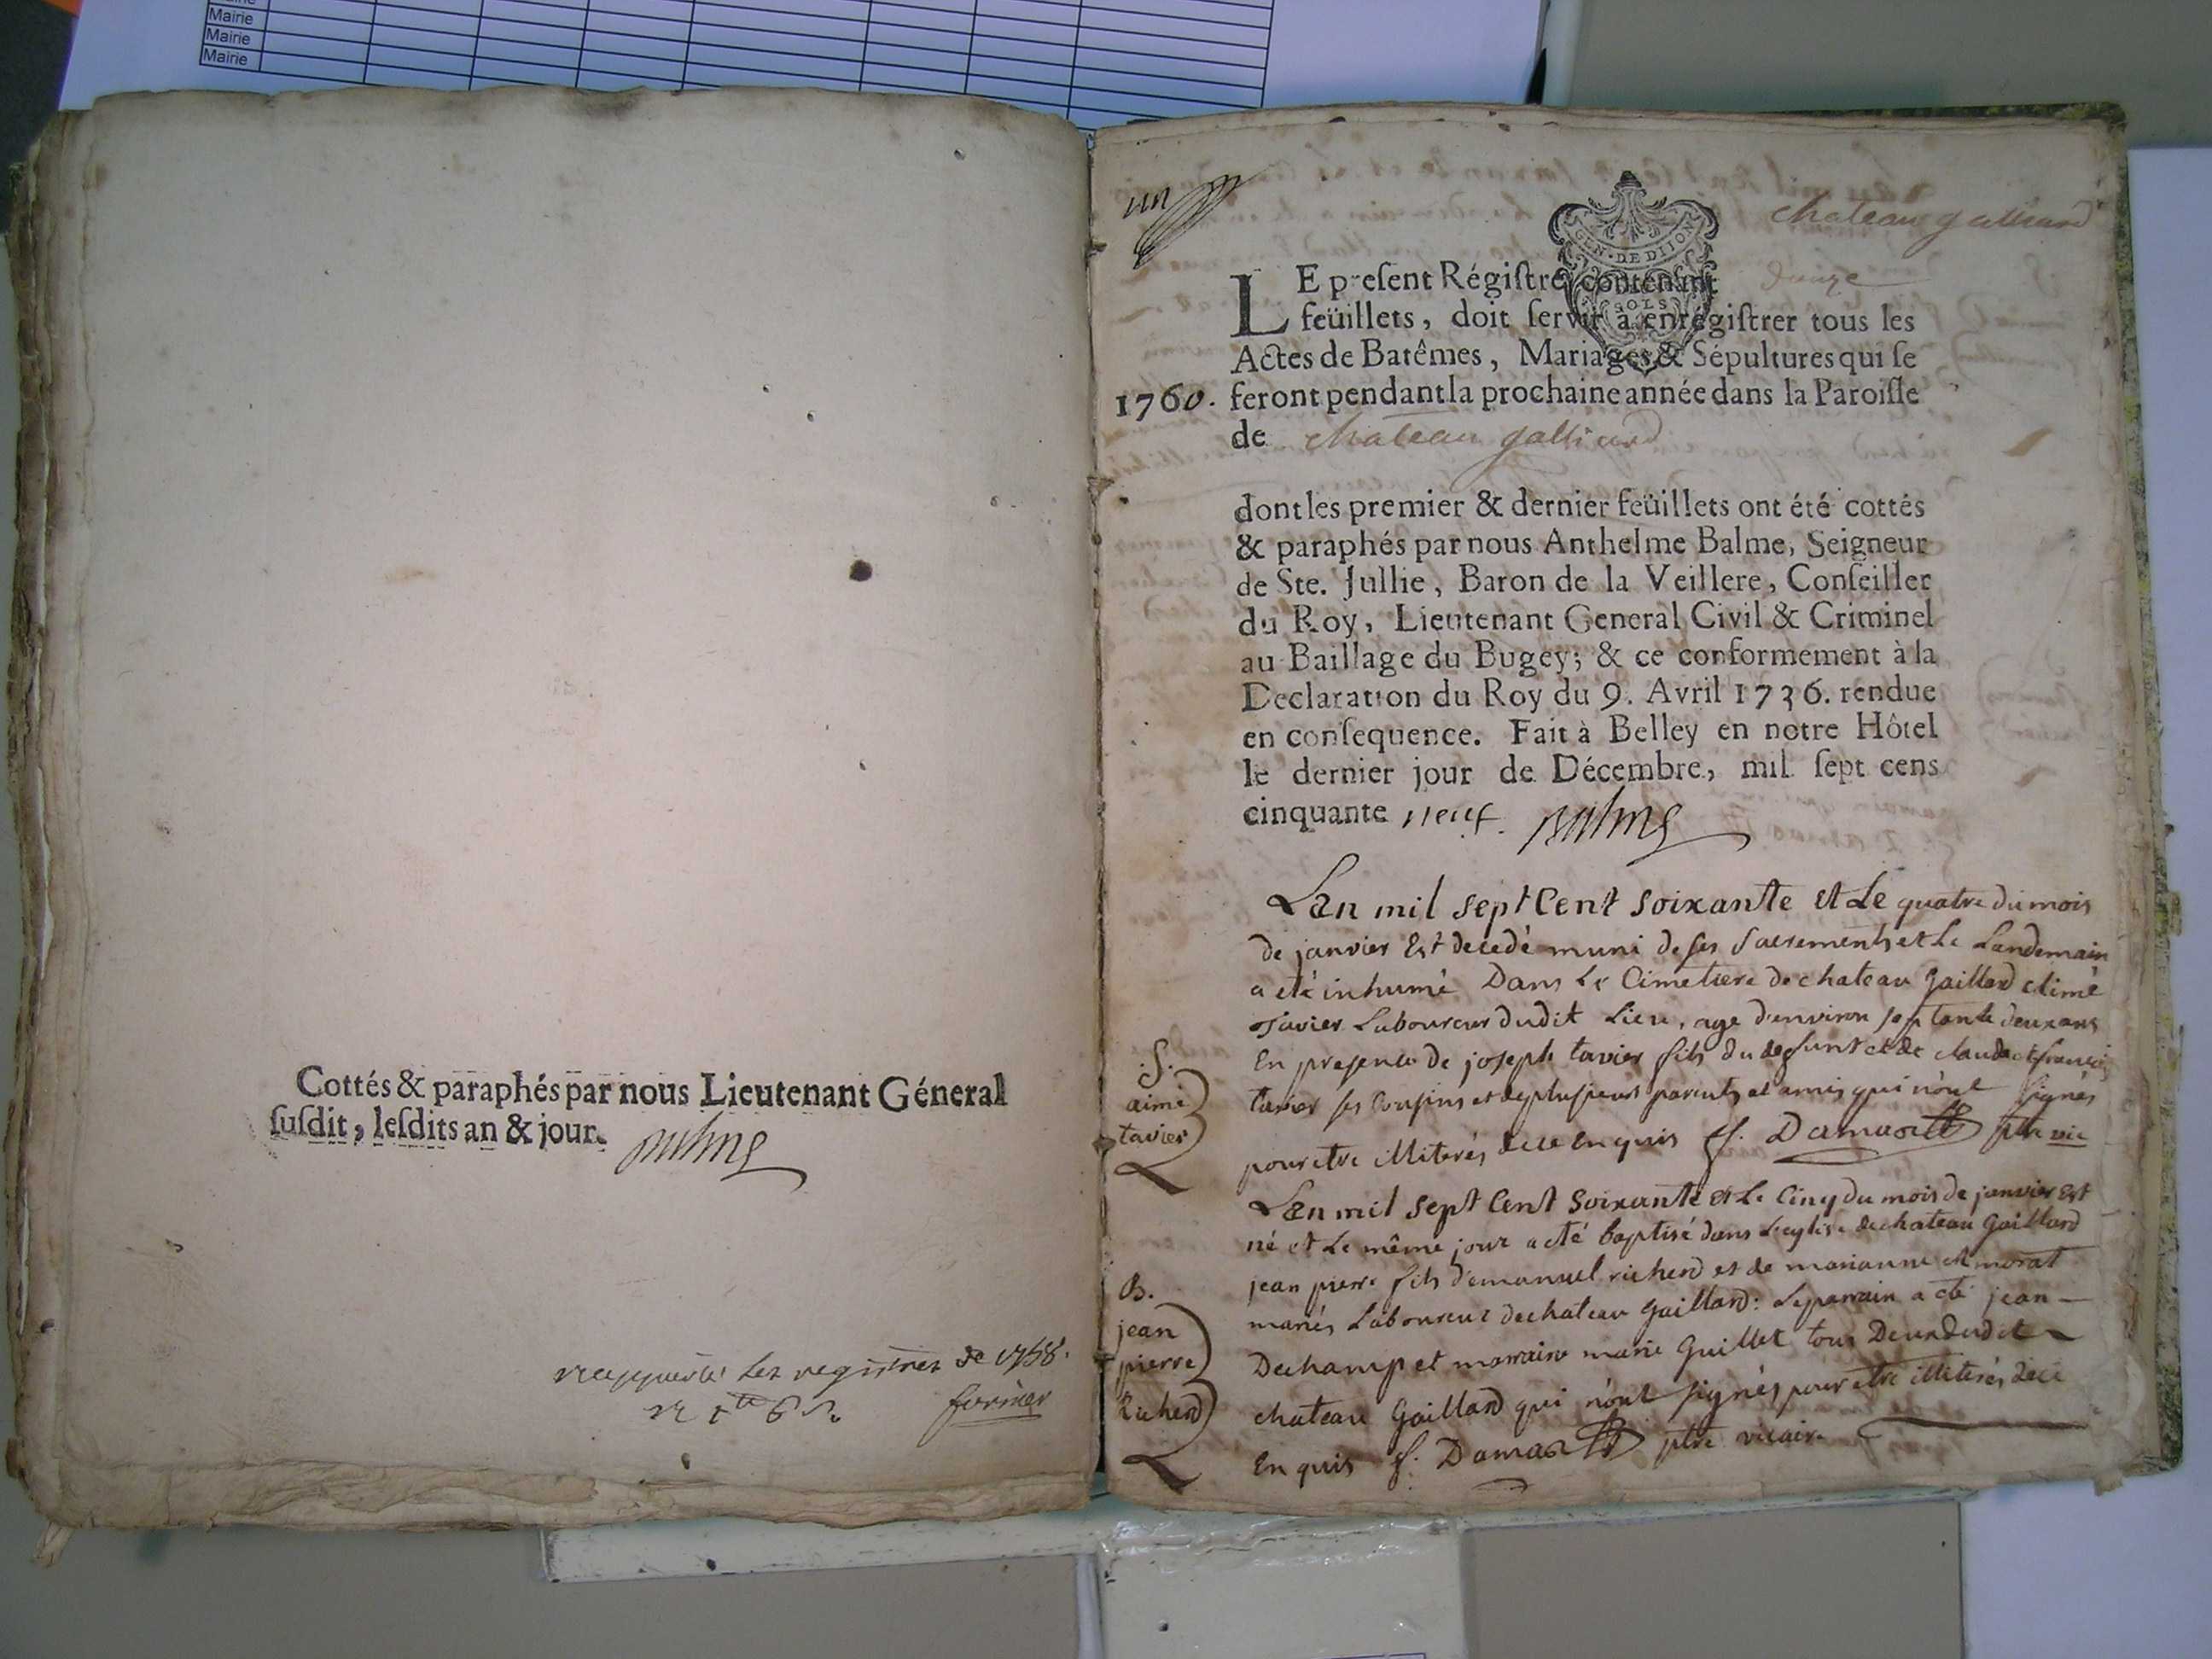 Mairie
Mairie
Mairie
Cottés & paraphés par nous Lieutenant Géneral
ſuſdit, leſdits an & jour.
les registres de 1758.
un
chateau galliard
GEN. DE DIJON
SOLS
LE preſent Régiſtre contenant douze
feüillets, doit ſervir à enrégiſtrer tous les
Actes de Batêmes, Mariages & Sépultures qui ſe
1760. feront pendant la prochaine année dans la Paroiſſe
de chateau galliard
dont les premier & dernier feüillets ont été cottés
& paraphés par nous Anthelme Balme, Seigneur
de Ste. Jullie, Baron de la Veillere, Conſeiller
du Roy, Lieutenant General Civil & Criminel
au Baillage du Bugey; & ce conformement à la
Declaration du Roy du 9. Avril 1736. rendue
en conſequence. Fait à Belley en notre Hôtel
le dernier jour de Décembre, mil ſept cens
cinquante neuf. Balme
Lan mil sept Cent Soixante et Le quatre du mois
de janvier Est decedé muni de ses Sacrements et Le Landemain
a eté inhumé Dans Le Cimetiere de chateau Gaillard
Laboureur dudit Lieu, age d'environ septante deux ans
En presence de joseph tavier fils du defunt et de claude et francois
tavier ses Cousins et de plusieurs parents et amis qui n'ont signés
pour etre illiterés de ce Enquis f. Damas ptre vic
S.
aimé
tavier
Lan mil Sept Cent Soixante et Le Cinq du mois de janvier Est
né et Le même jour a eté baptisé dans Leglise de chateau Gaillard
jean pierre fils d'emanuel richerd et de marianne morat
mariés Laboureur de chateau Gaillard: Le parrain a eté jean
Dechamp et marraine marie Guillet tous Deux dudit
chateau Gaillard qui n'ont signés pour etre illiterés de ce
Enquis f. Damas ptre vicaire
B.
jean
pierre
Richerd